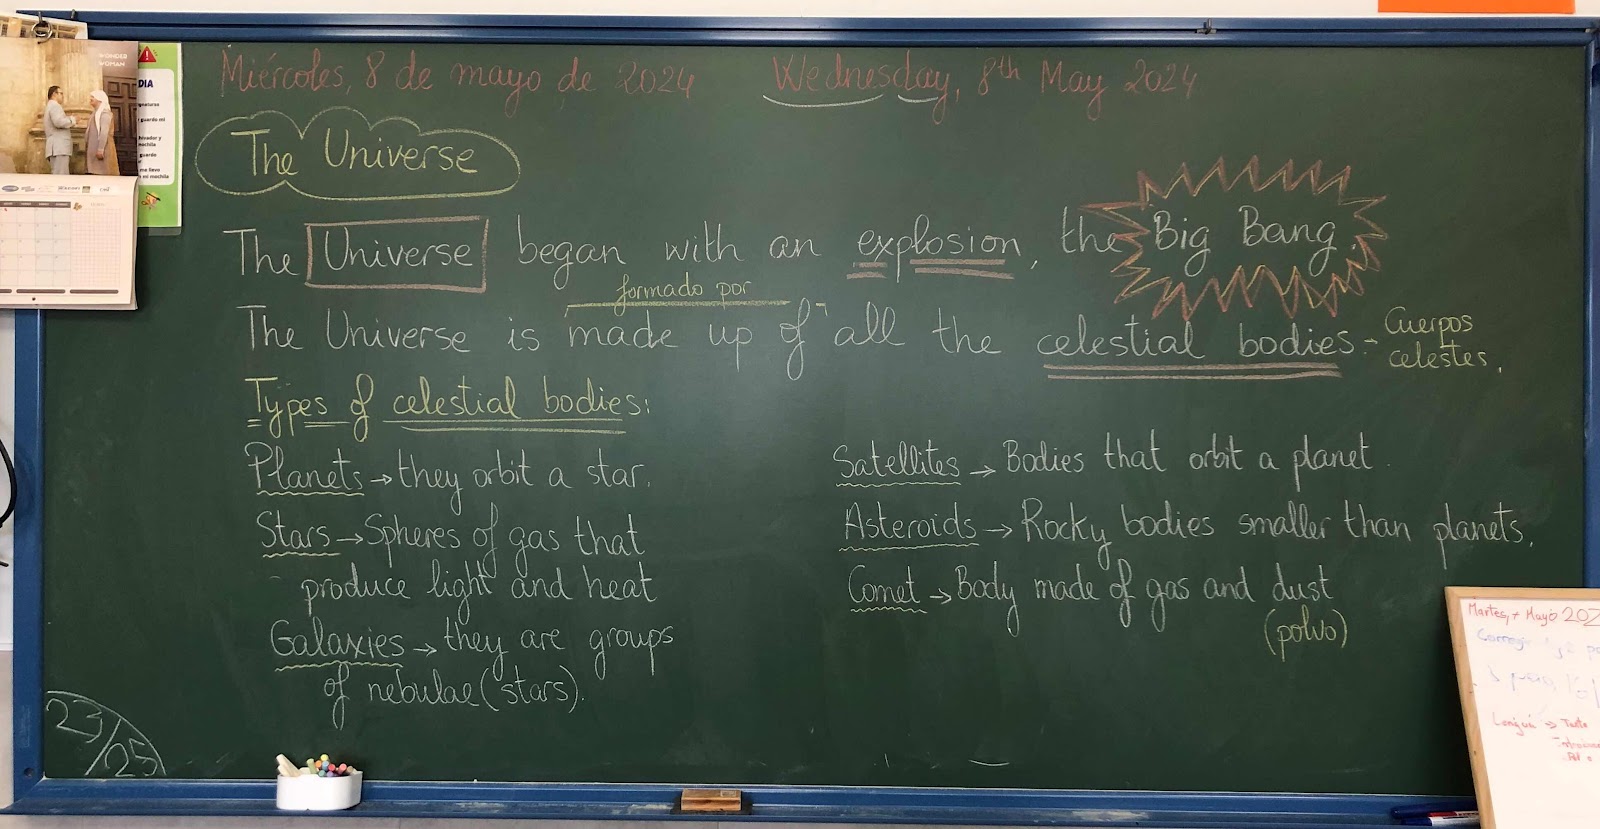 Miércoles, 8 de mayo de 2024
Wednesday, 8th May 2024
The Universe
The Universe began with an explosion, the Big Bang.
formado por
The Universe is made up of all the celestial bodies → Cuerpos
celestes.
Types of celestial bodies:
Planets → they orbit a star.
Stars → Spheres of gas that
produce light and heat
Galaxies → they are groups
of nebulae (stars).
Satellites → Bodies that orbit a planet.
Asteroids → Rocky bodies smaller than planets.
Comet → Body made of gas and dust
(polvo)
23/25
WONDER
WOMAN
DIA
guardo mi
guardo
mi mochila
Martes, 7 Mayo 202
Corregir
Lengua →